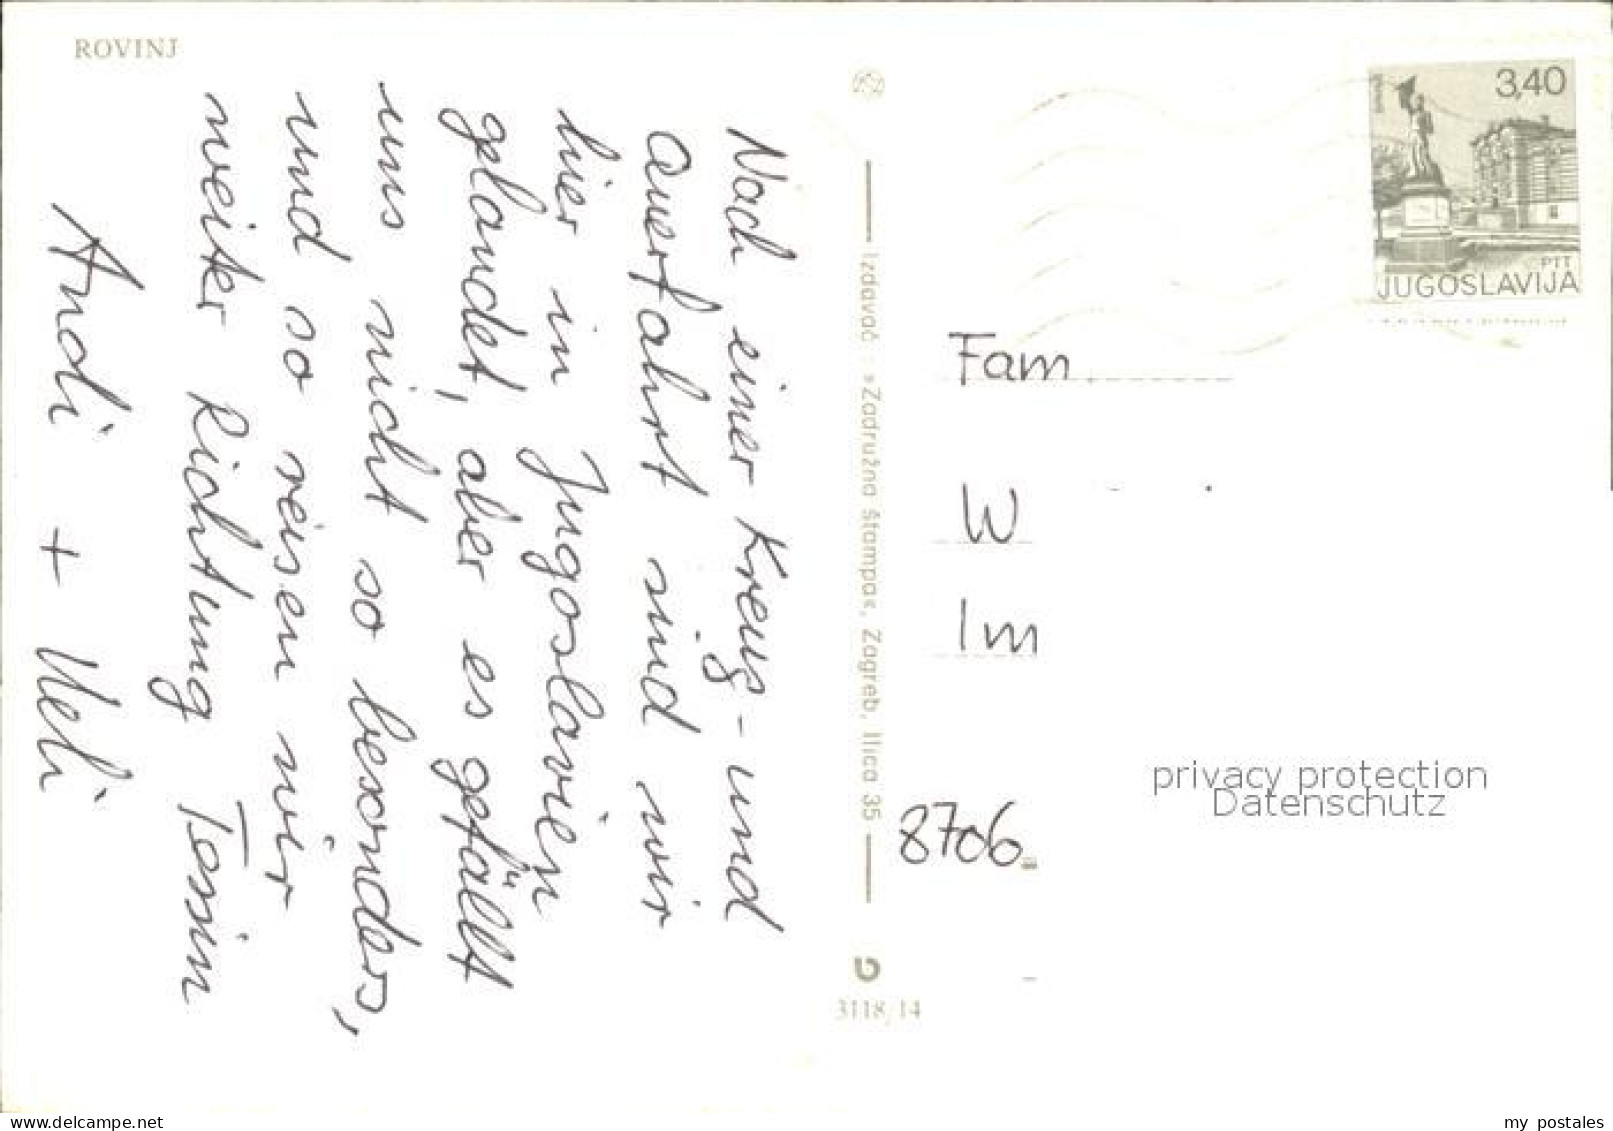 ROVINJ
Nach einer Kreuz- und
Querfahrt sind wir
hier in Jugoslavien
gelandet, aber es gefällt
uns nicht so besonders,
und so reisen wir
weiter Richtung Tessin
Andi + Ueli
Izdavač: »Zadružna štampa«, Zagreb, Ilica 35
3118/14
3,40
PTT
JUGOSLAVIJA
Fam.
W
Im
8706
privacy protection
Datenschutz
www.delcampe.net
my postales